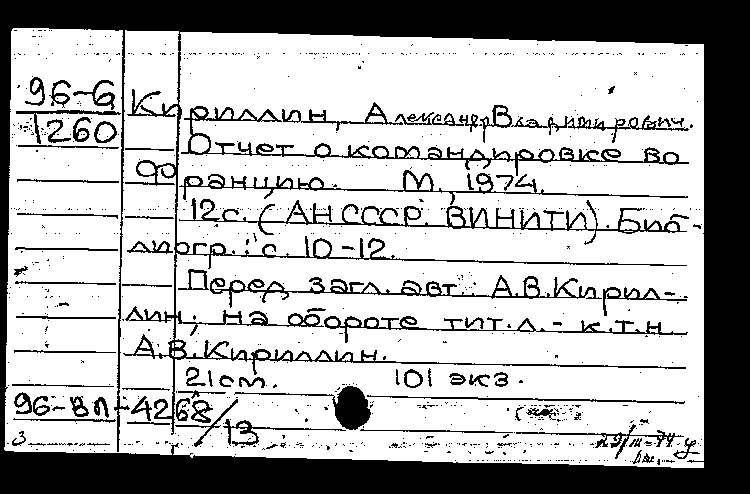 96-6
1260
Кириллин, Александр Владимирович.
Отчет о командировке во
Францию. М., 1974.
12с. (АН СССР. ВИНИТИ). Биб-
лиогр.: с. 10-12.
Перед загл. авт.: А.В.Кирил-
лин; на обороте тит.л.- к.т.н.
А.В.Кириллин.
21см. 101 экз.
96-ВП-4268/13
3